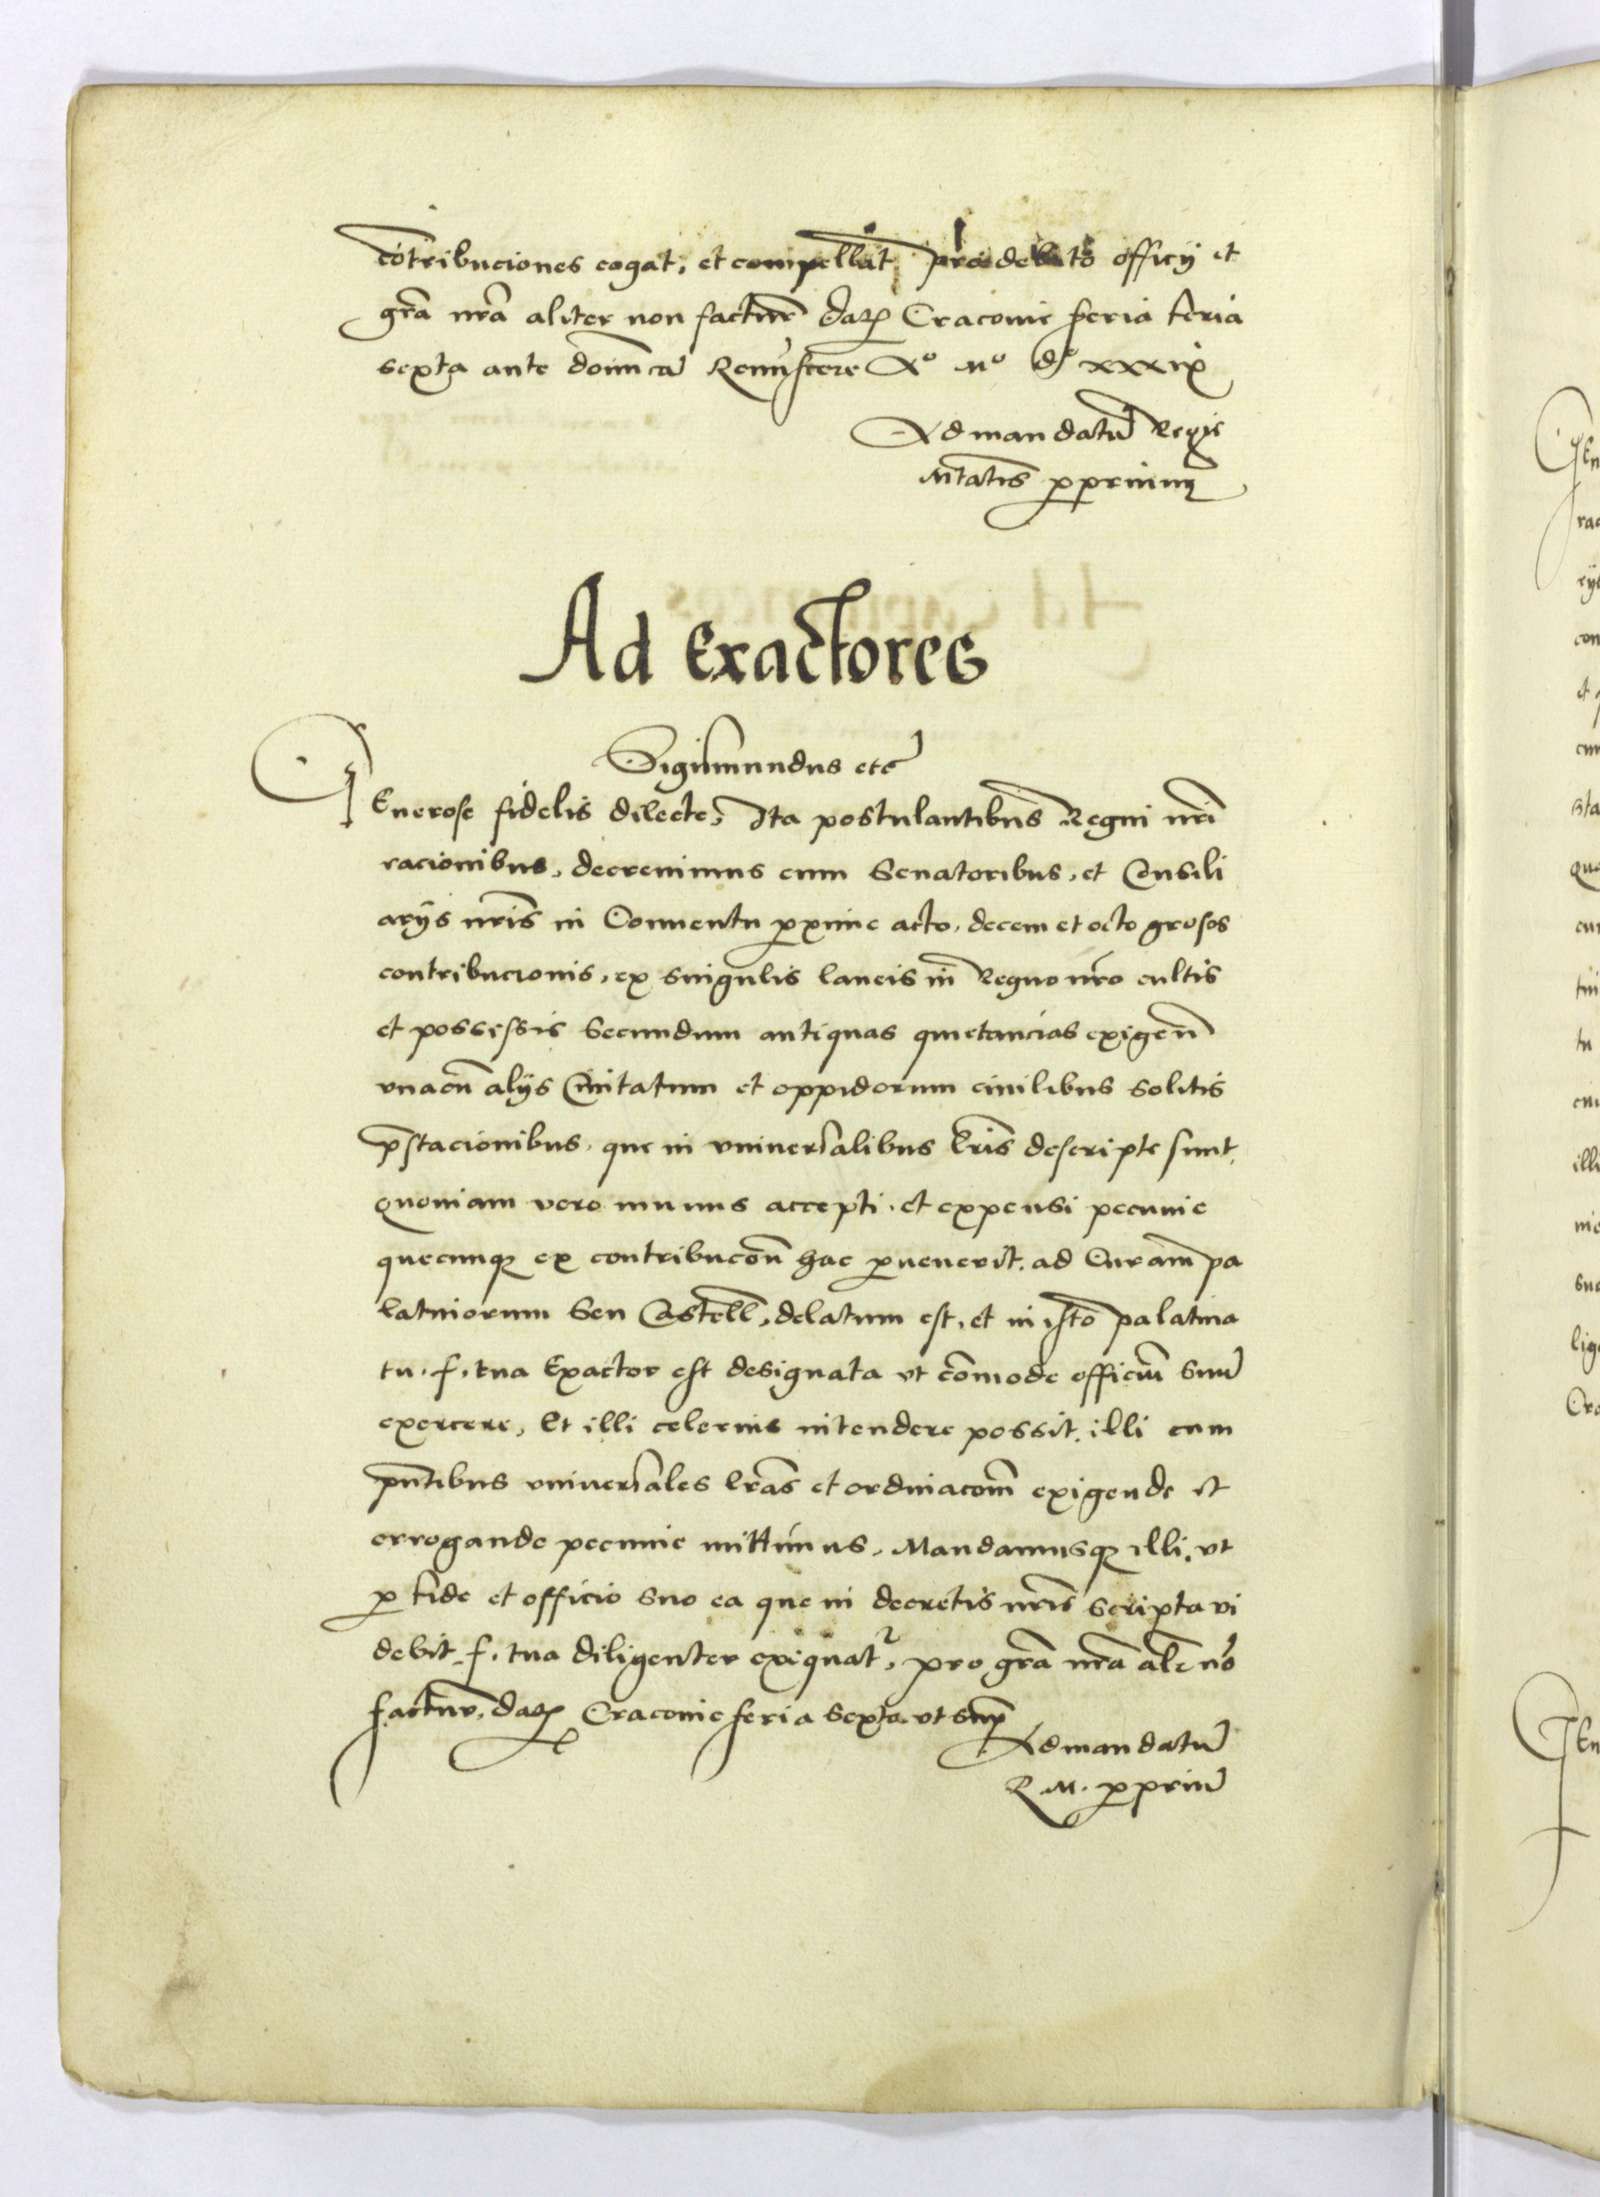 cõtribuciones cogat, et compellat pro debito officij et
gr̃a nr̃a aliter non factur̃ Dat̃ Cracovie feria feria
sexta ante dominicã Reminiscere Aº Mº dº xxxix
Ad mandatũ Regie
Mtatis ꝓprium
Ad Exactores
Sigismundus etc̃
GEnerose fidelis dilecte, Ita postulantibus Regni nrĩ
racionibus, decrevimus cum Senatoribus, et Consili
arijs nrĩs in Conventu ꝓxime acto, decem et octo grosos
contribucionis, ex singulis laneis in Regno nrõ cultis
et possessis Secundum antiquas quietancias exigeñ
unacũ alijs Civitatum et oppidorum civilibus solitis
p̃stacionibus, que in universalibus lrĩs descripte sunt,
quoniam vero munus accepti, et expensi pecunie
quecunq̃ ex contribucoñ hac ꝑvenerit, ad Curam pa
latinorum Seu Castell̃, delatum est, et in isto palatina
tu. f. tua Exactor est designata ut cõmode officiũ suũ
exercere, Et illi celerius intendere possit, illi cum
pñtibus universales lrãs et ordinacoñ exigende et
errogande pecunie mittimus, Mandamusq̃ illi, ut
ꝓ fide et officio suo ea que in decretis nrĩs scripta vi
debit f. tua diligenter exiquat͛, pro gr̃a nr̃a alr̃ nõ
factur̃, dat̃ Cracovie feria Sexta ut sup̃
Ad mandatũ
R. M. ꝓpriũ